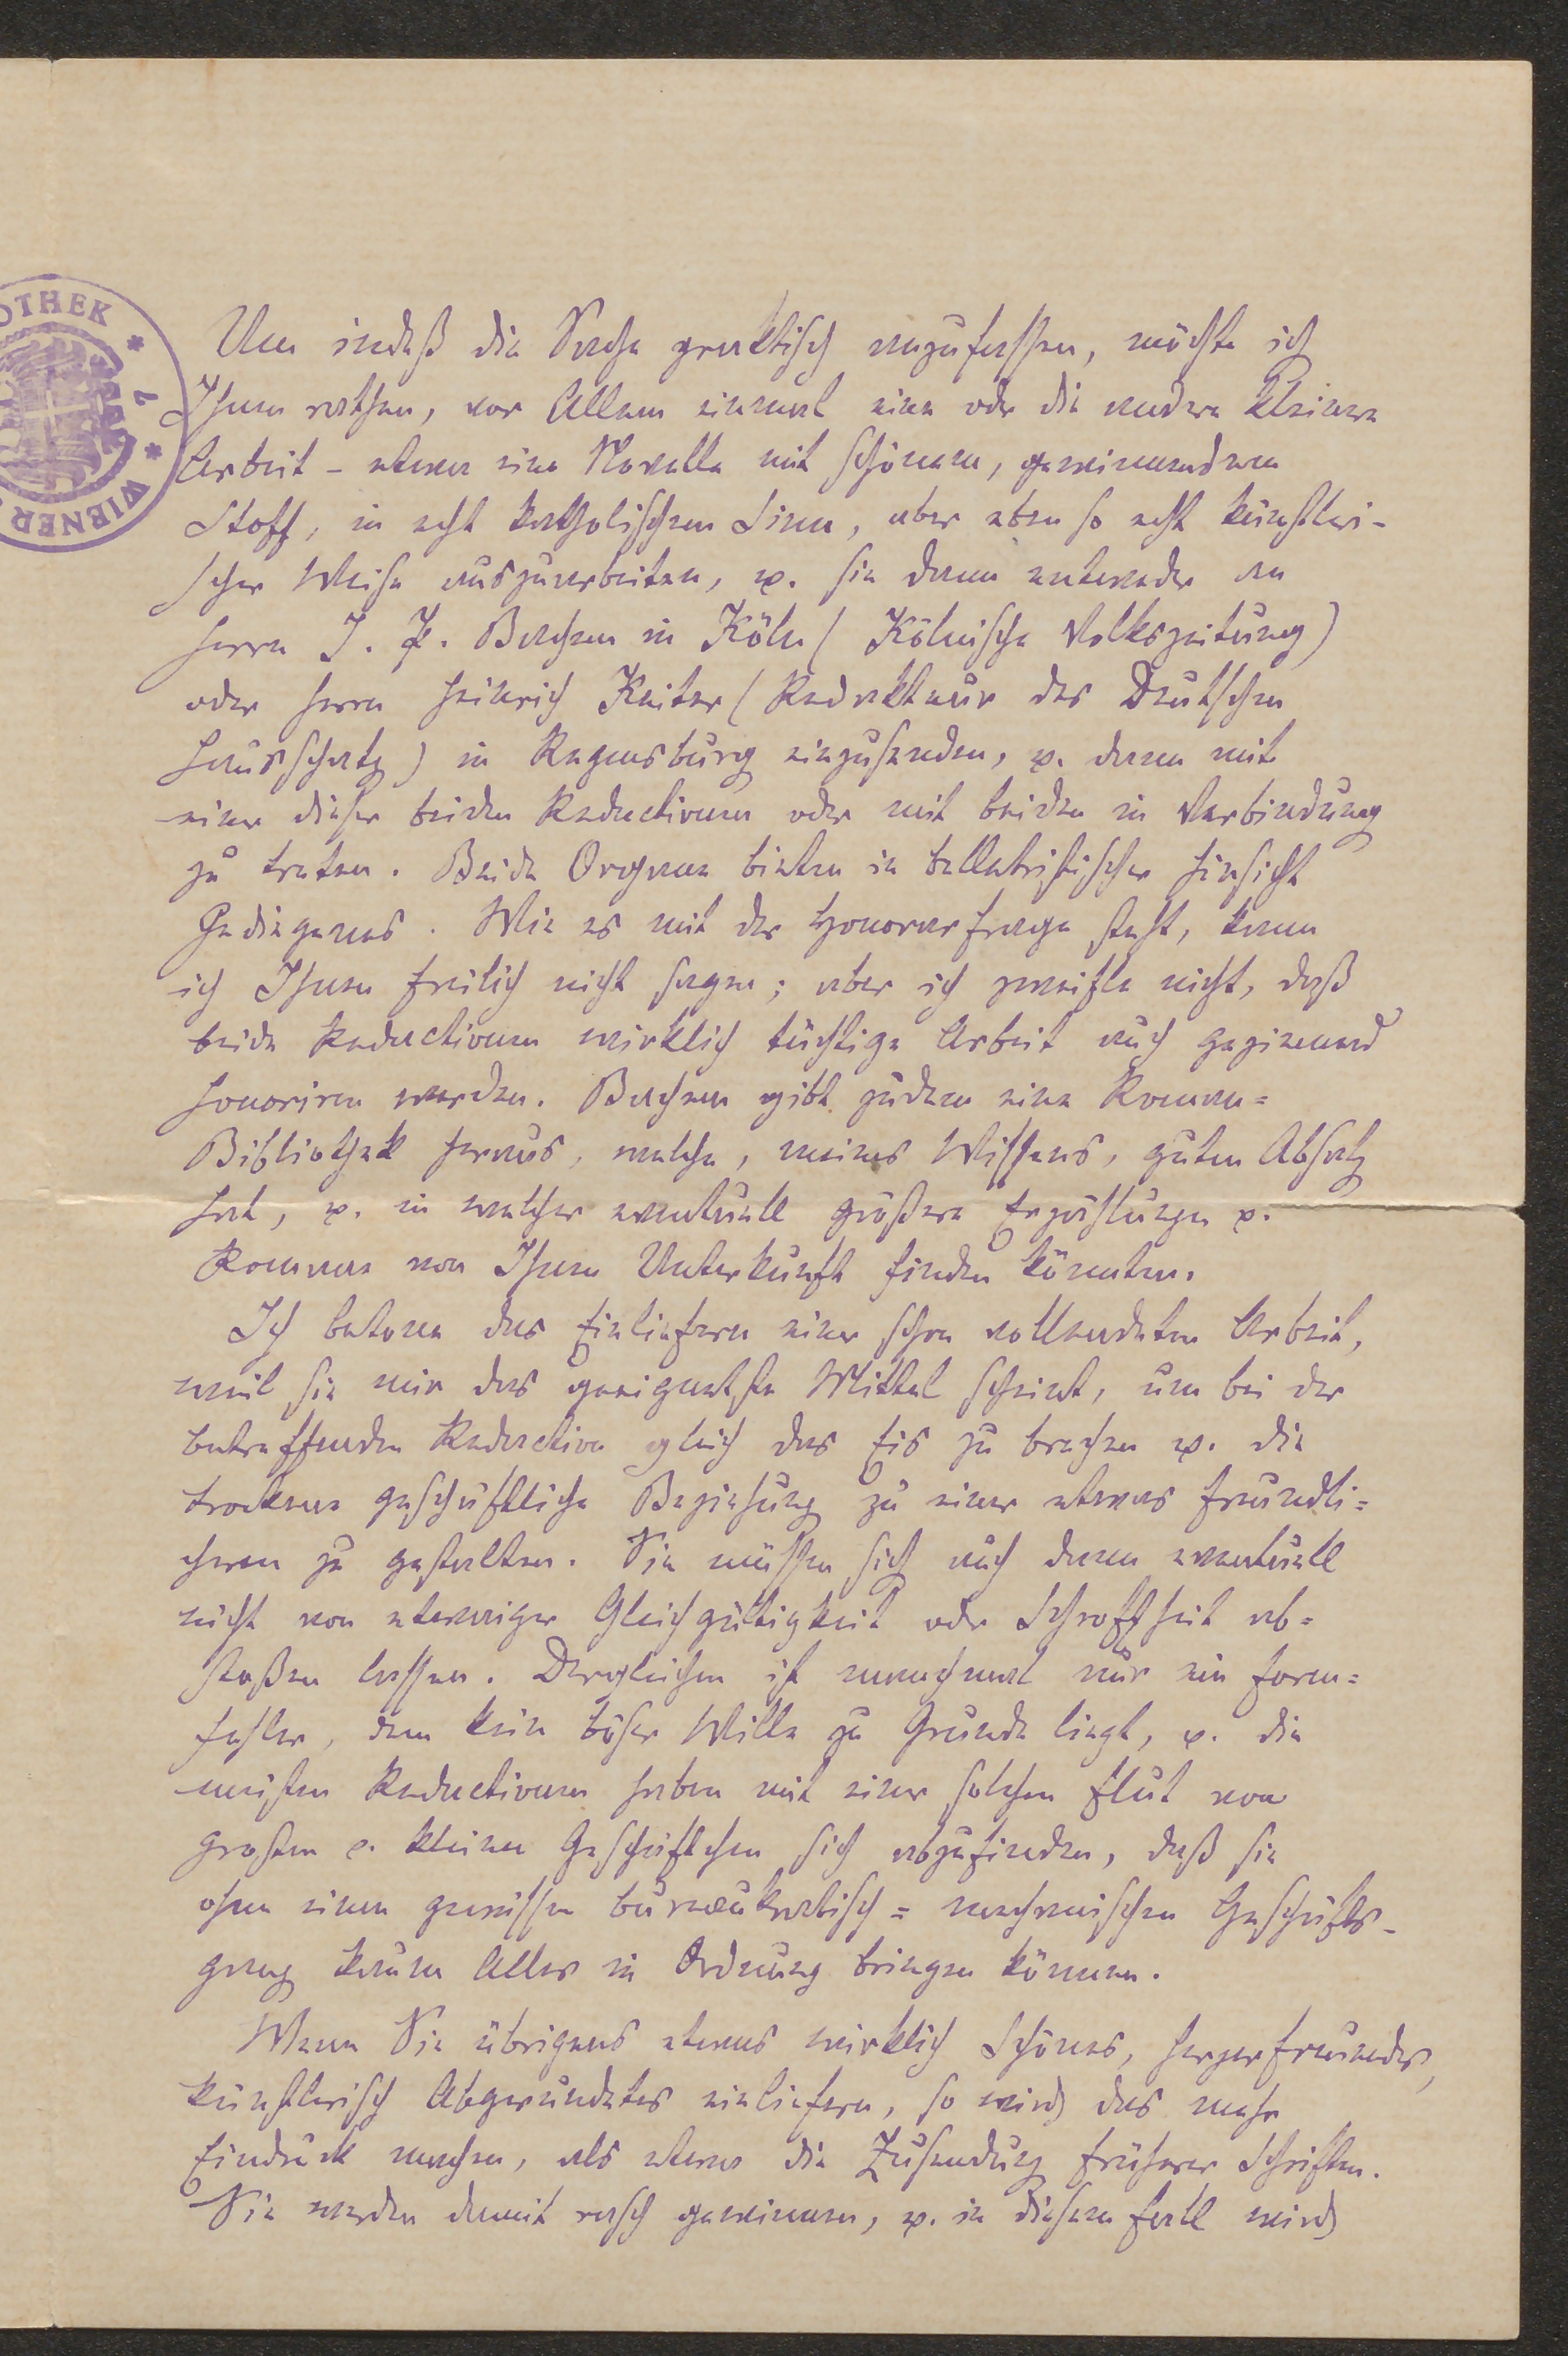 OTHEK * 7 * WIENER
Um indeß die Sache praktisch anzufassen, möchte ich
Ihnen rathen, vor Allem einmal eine oder die andere kleinere
Arbeit – etwa eine Novelle mit schönem, gewinnendem
Stoff, in echt katholischem Sinn, aber eben so echt künstleri-
scher Weise auszuarbeiten, u. sie dann entweder an
Herrn J. P. Bachem in Köln (Kölnische Volkszeitung)
oder Herrn Heinrich Keiter (Redakteur des Deutschen
Hausschatz) in Regensburg einzusenden, u. dann mit
einer dieser beiden Redactionen oder mit beiden in Verbindung
zu treten. Beide Organe bieten in belletristischer Hinsicht
Gediegenes. Wie es mit der Honorarfrage steht, kann
ich Ihnen freilich nicht sagen; aber ich zweifle nicht, daß
beide Redactionen wirklich tüchtige Arbeit auch geziemend
honoriren werden. Bachem gibt zudem eine Roman=
Bibliothek heraus, welche, meines Wissens, guten Absatz
hat, u. in welcher eventuell größere Erzählungen u.
Romane von Ihnen Unterkunft finden könnten.
Ich betone das Einliefern einer schon vollendeten Arbeit,
weil sie mir das geeignetste Mittel scheint, um bei der
betreffenden Redaction gleich das Eis zu brechen u. die
trockene geschäftliche Beziehung zu einer etwas freundli=
cheren zu gestalten. Sie müssen sich auch dann eventuell
nicht von etwaiger Gleichgültigkeit oder Schroffheit ab=
stoßen lassen. Dergleichen ist manchmal nur ein Form=
fehler, dem kein böser Wille zu Grunde liegt, u. die
meisten Redactionen haben mit einer solchen Flut von
großen u. kleinen Geschäftchen sich abzufinden, daß sie
ohne einen gewissen bureaukratisch=mechanischen Geschäfts-
gang kaum Alles in Ordnung bringen können.
Wenn Sie übrigens etwas wirklich Schönes, Herzerfreuendes,
künstlerisch Abgerundetes einliefern, so wird das mehr
Eindruck machen, als etwa die Zusendung früherer Schriften.
Sie werden damit rasch gewinnen, u. in diesem Fall wird